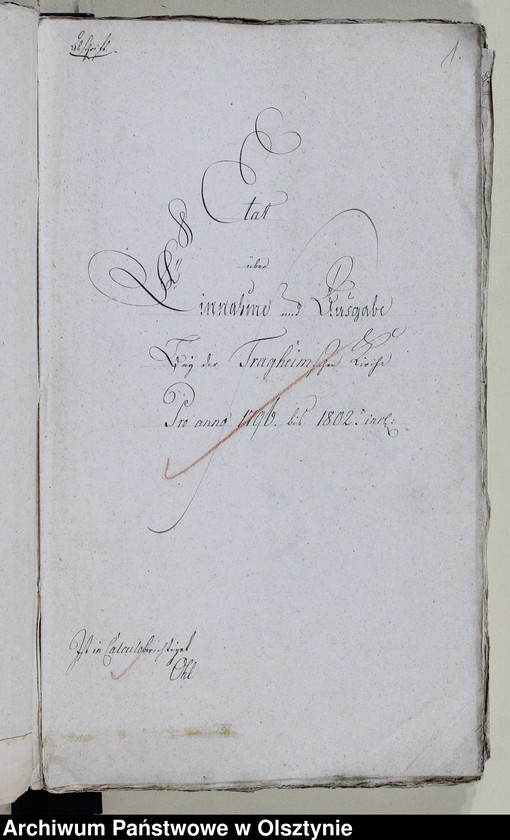 Abschrift.
1.
Etat
über
Einnahme und Ausgabe
bey der Tragheimschen Kirche
Pro anno 1796. bis 1802. incl:
Ist in Calculo berichtiget
Ohl
Archiwum Państwowe w Olsztynie